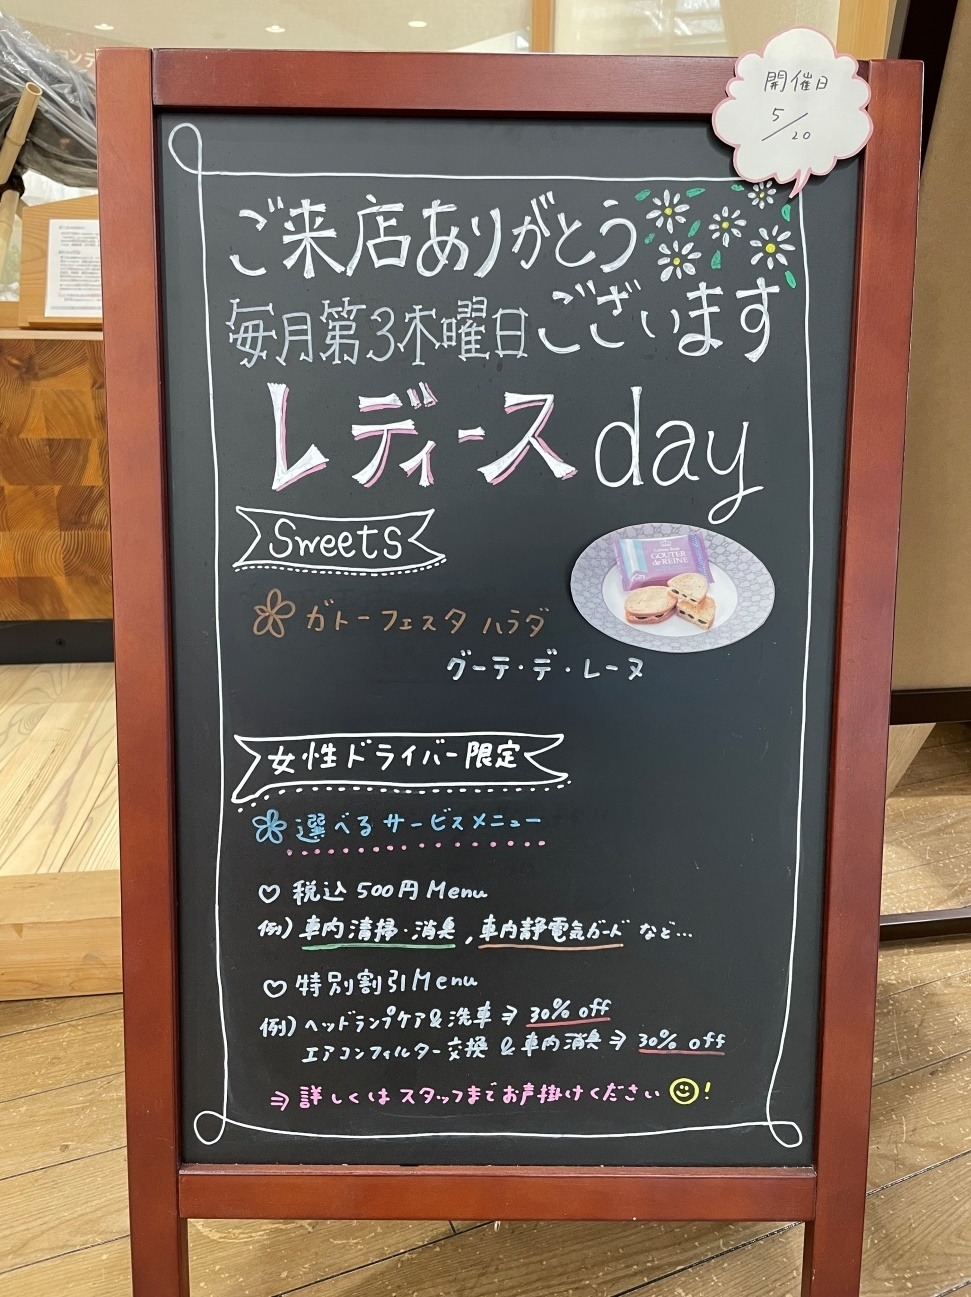 開催日
5/20
ご来店ありがとう
ございます
毎月第3木曜日
レディース day
Sweets
GOUTER
de REINE
ガトーフェスタ ハラダ
グーテ・デ・レーヌ
女性ドライバー限定
選べるサービスメニュー
♡ 税込500円Menu
例) 車内清掃・消臭, 車内静電気ガード など…
♡ 特別割引Menu
例) ヘッドランプケア&洗車⇒30% off
エアコンフィルター交換 & 車内消臭⇒30% off
⇒詳しくはスタッフまでお声掛けください☺!